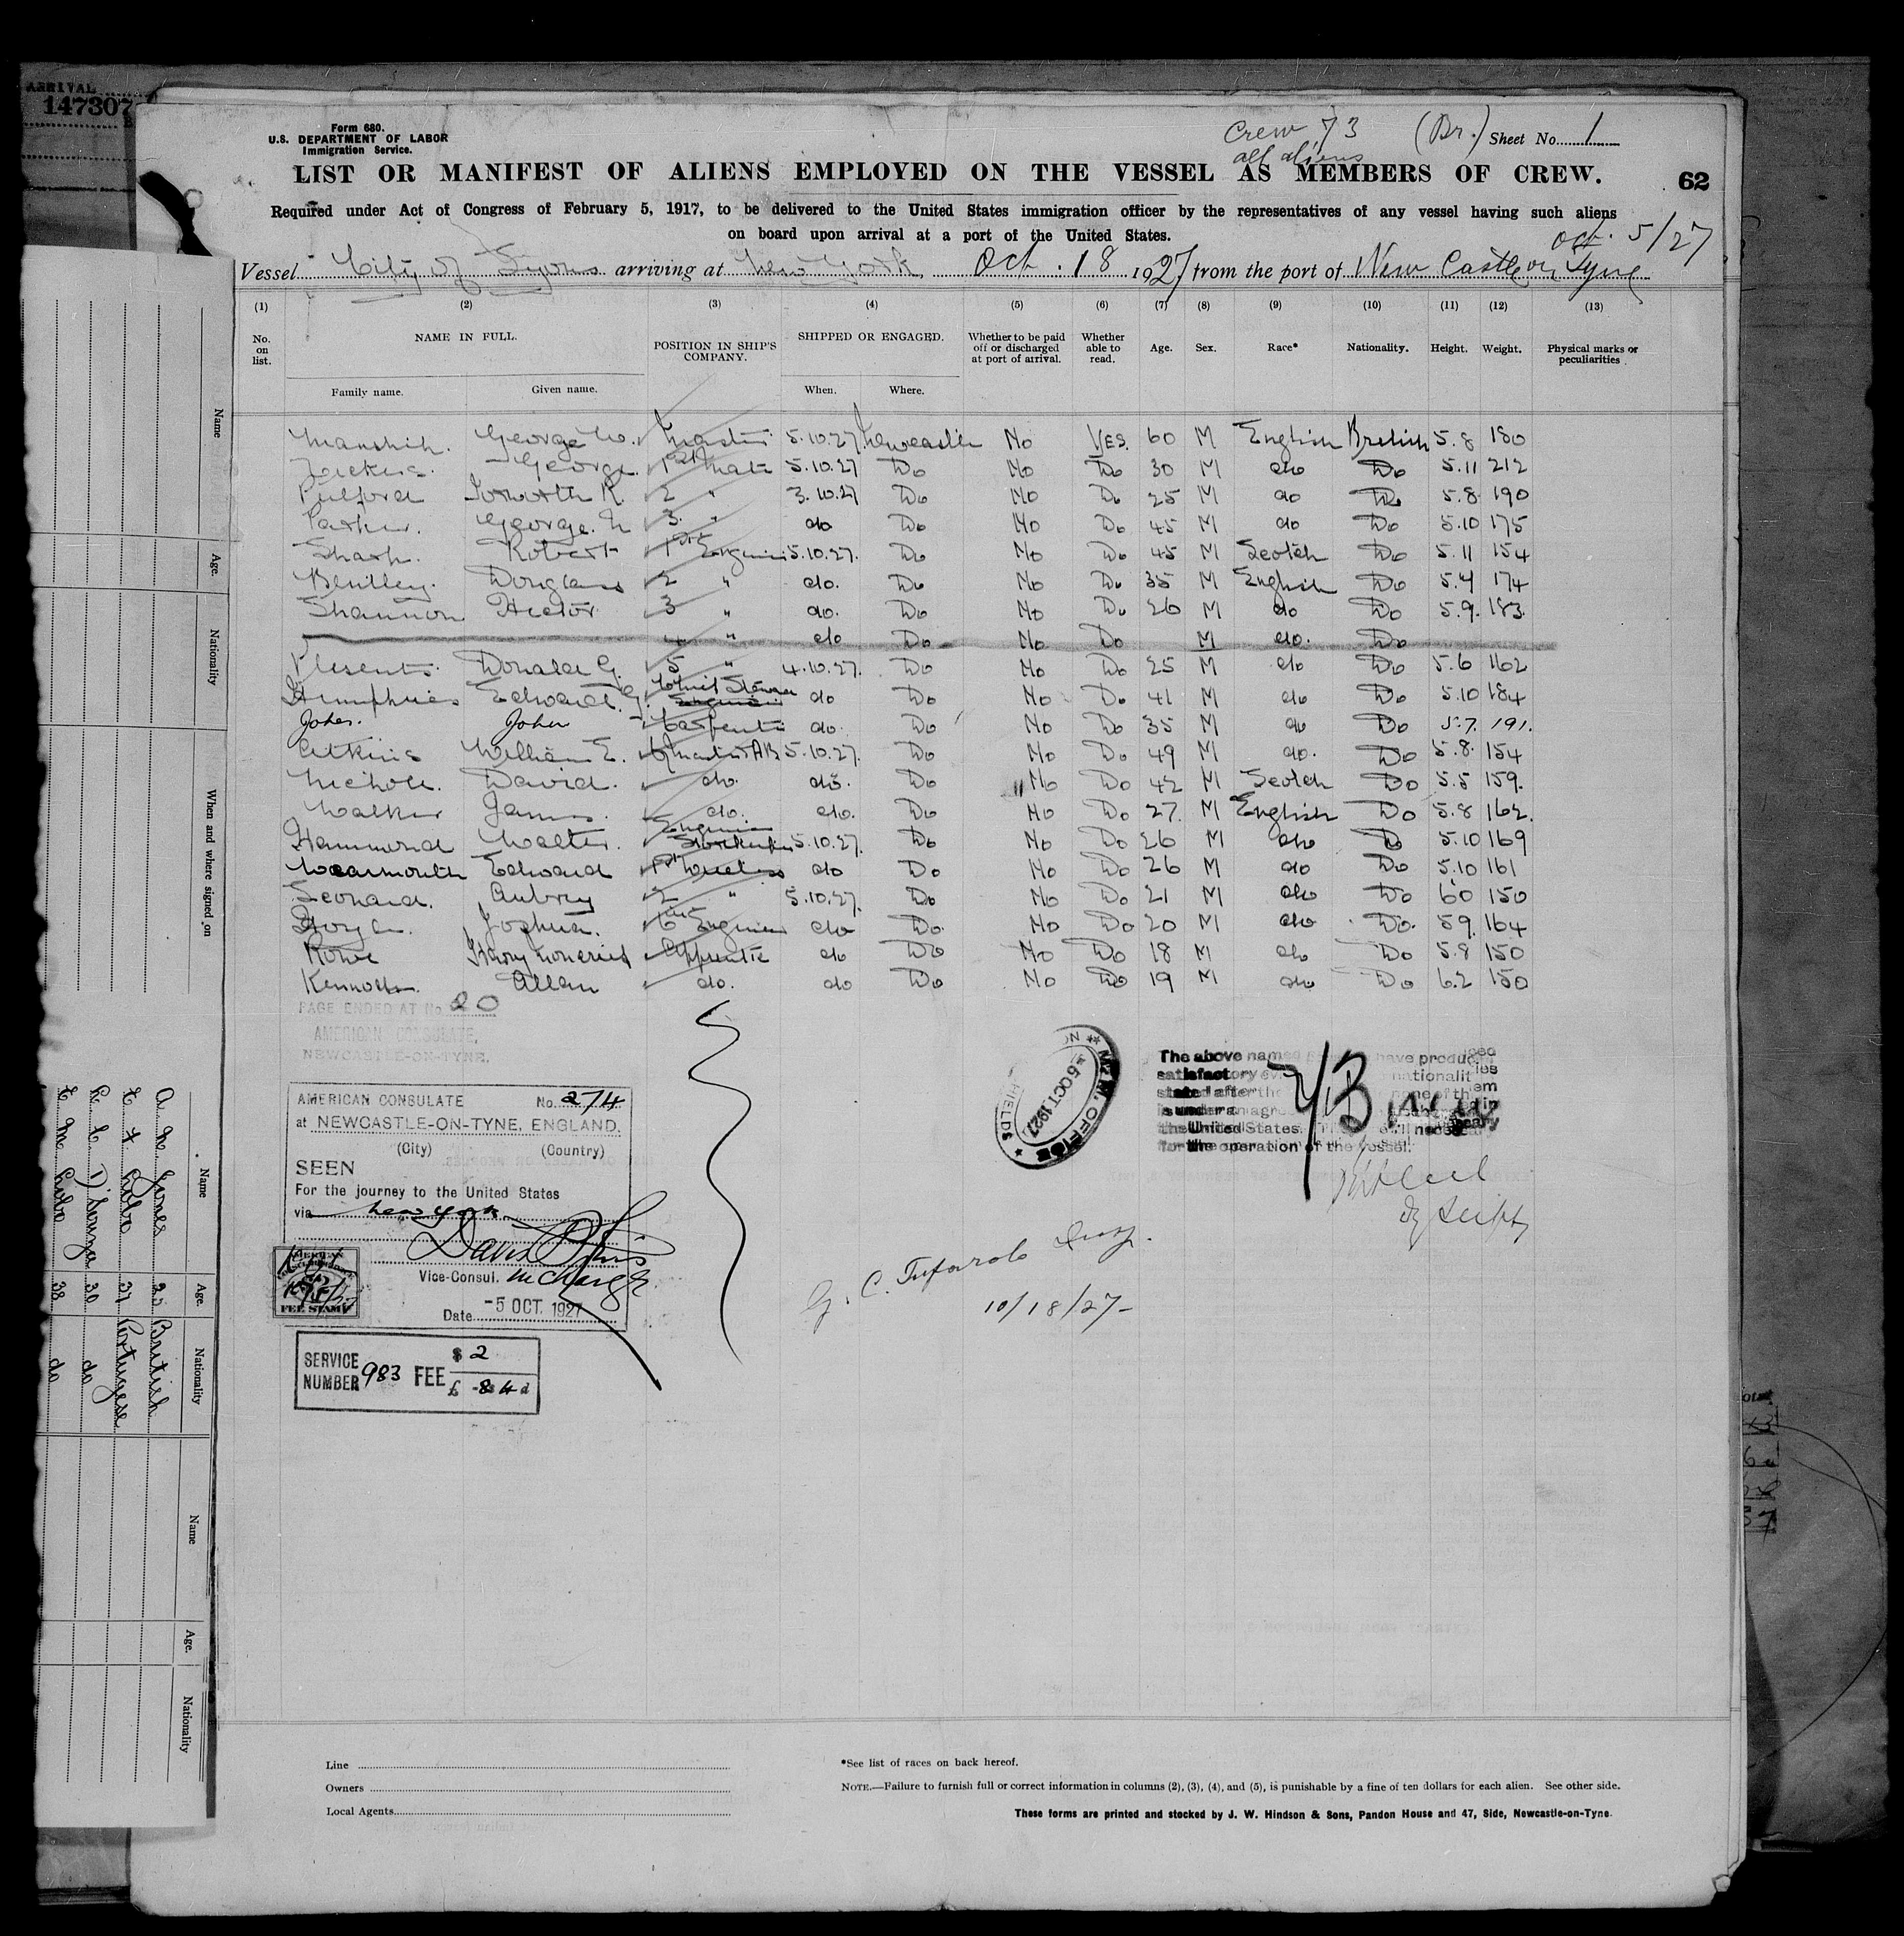 ARRIVAL
147307
Form 680.
U.S. DEPARTMENT OF LABOR
Immigration Service.
Crew 73 (Br.) Sheet No. 1
all aliens
LIST OR MANIFEST OF ALIENS EMPLOYED ON THE VESSEL AS MEMBERS OF CREW.
62
Required under Act of Congress of February 5, 1917, to be delivered to the United States immigration officer by the representatives of any vessel having such aliens
on board upon arrival at a port of the United States.
Oct. 5/27
Vessel City of Lyons arriving at New York Oct. 18 1927 from the port of New Castle on Tyne
(1) (2) (3) (4) (5) (6) (7) (8) (9) (10) (11) (12) (13)
No. on list. NAME IN FULL. POSITION IN SHIP'S COMPANY. SHIPPED OR ENGAGED. Whether to be paid off or discharged at port of arrival. Whether able to read. Age. Sex. Race* Nationality. Height. Weight. Physical marks or peculiarities
Family name. Given name. When. Where.
George W. Master 5.10.27 Newcastle No YES. 60 M English British 5.8 180
George 1st Mate 5.10.27 Do No Do 30 M do Do 5.11 212
Pulford 2 " 3.10.27 Do No Do 25 M do Do 5.8 190
Parker. George. 3. " do Do No Do 45 M do Do 5.10 175
Sharp. Robert 1st Engineer 5.10.27. Do No Do 45 M Scotch Do 5.11 154
Bentley. Douglas 2 " do. Do No Do 35 M English Do 5.4 174
Shannon Hector 3 " do. Do No Do 26 M do Do 5.9. 183
4 " do Do No Do M do. Do
Donald G. 5 " 4.10.27. Do No Do 25 M do Do 5.6 162
Humphries Edward G. Chief Steward do Do No Do 41 M do Do 5.10 184
John Carpenter do. Do No Do 35 M do Do 5.7. 191.
Atkins William E. 5.10.27. Do No Do 49 M do. Do 5.8. 154
Nichol. David. do. do. Do No Do 42 M Scotch Do 5.5 159.
Walker James. do. do. Do No Do 27. M English Do 5.8 162.
Hammond Walter. Engineer Storekeeper 5.10.27. Do No Do 26 M do Do 5.10 169
Wearmouth Edward 1st Wireless do Do No Do 26 M do Do 5.10 161
Leonard. Aubrey 2 " 5.10.27. Do No Do 21 M do Do 6.0 150
Joshua. 6th Engineer do Do. No Do 20 M do Do. 5.9. 164
Rowe Apprentice do Do No Do 18 M do Do 5.8 150
Allan do. do Do No Do 19 M do Do 6.2 150
PAGE ENDED AT No. 20
AMERICAN CONSULATE,
NEWCASTLE-ON-TYNE.
AMERICAN CONSULATE No. 274
at NEWCASTLE-ON-TYNE, ENGLAND.
(City) (Country)
SEEN
For the journey to the United States
via New York
Vice-Consul. in charge
Date -5 OCT. 1927
FEE STAMP
SERVICE NUMBER 983 FEE $ 2
£ -8s 4d
M.M. OFFICE
5 OCT 1927
The above named have produced
satisfactory nationalities
stated after the name of them
the United States.
for the operation of the vessel.
G. C. Tufarolo Insp.
10/18/27-
Name Age. Nationality When and where signed on
Name Age. Nationality
A. M. Jones 25 British
37 Portugese
D'Souza 30 do
38 do
Name Age. Nationality
Line
Owners
Local Agents
*See list of races on back hereof.
NOTE.—Failure to furnish full or correct information in columns (2), (3), (4), and (5), is punishable by a fine of ten dollars for each alien. See other side.
These forms are printed and stocked by J. W. Hindson & Sons, Pandon House and 47, Side, Newcastle-on-Tyne.